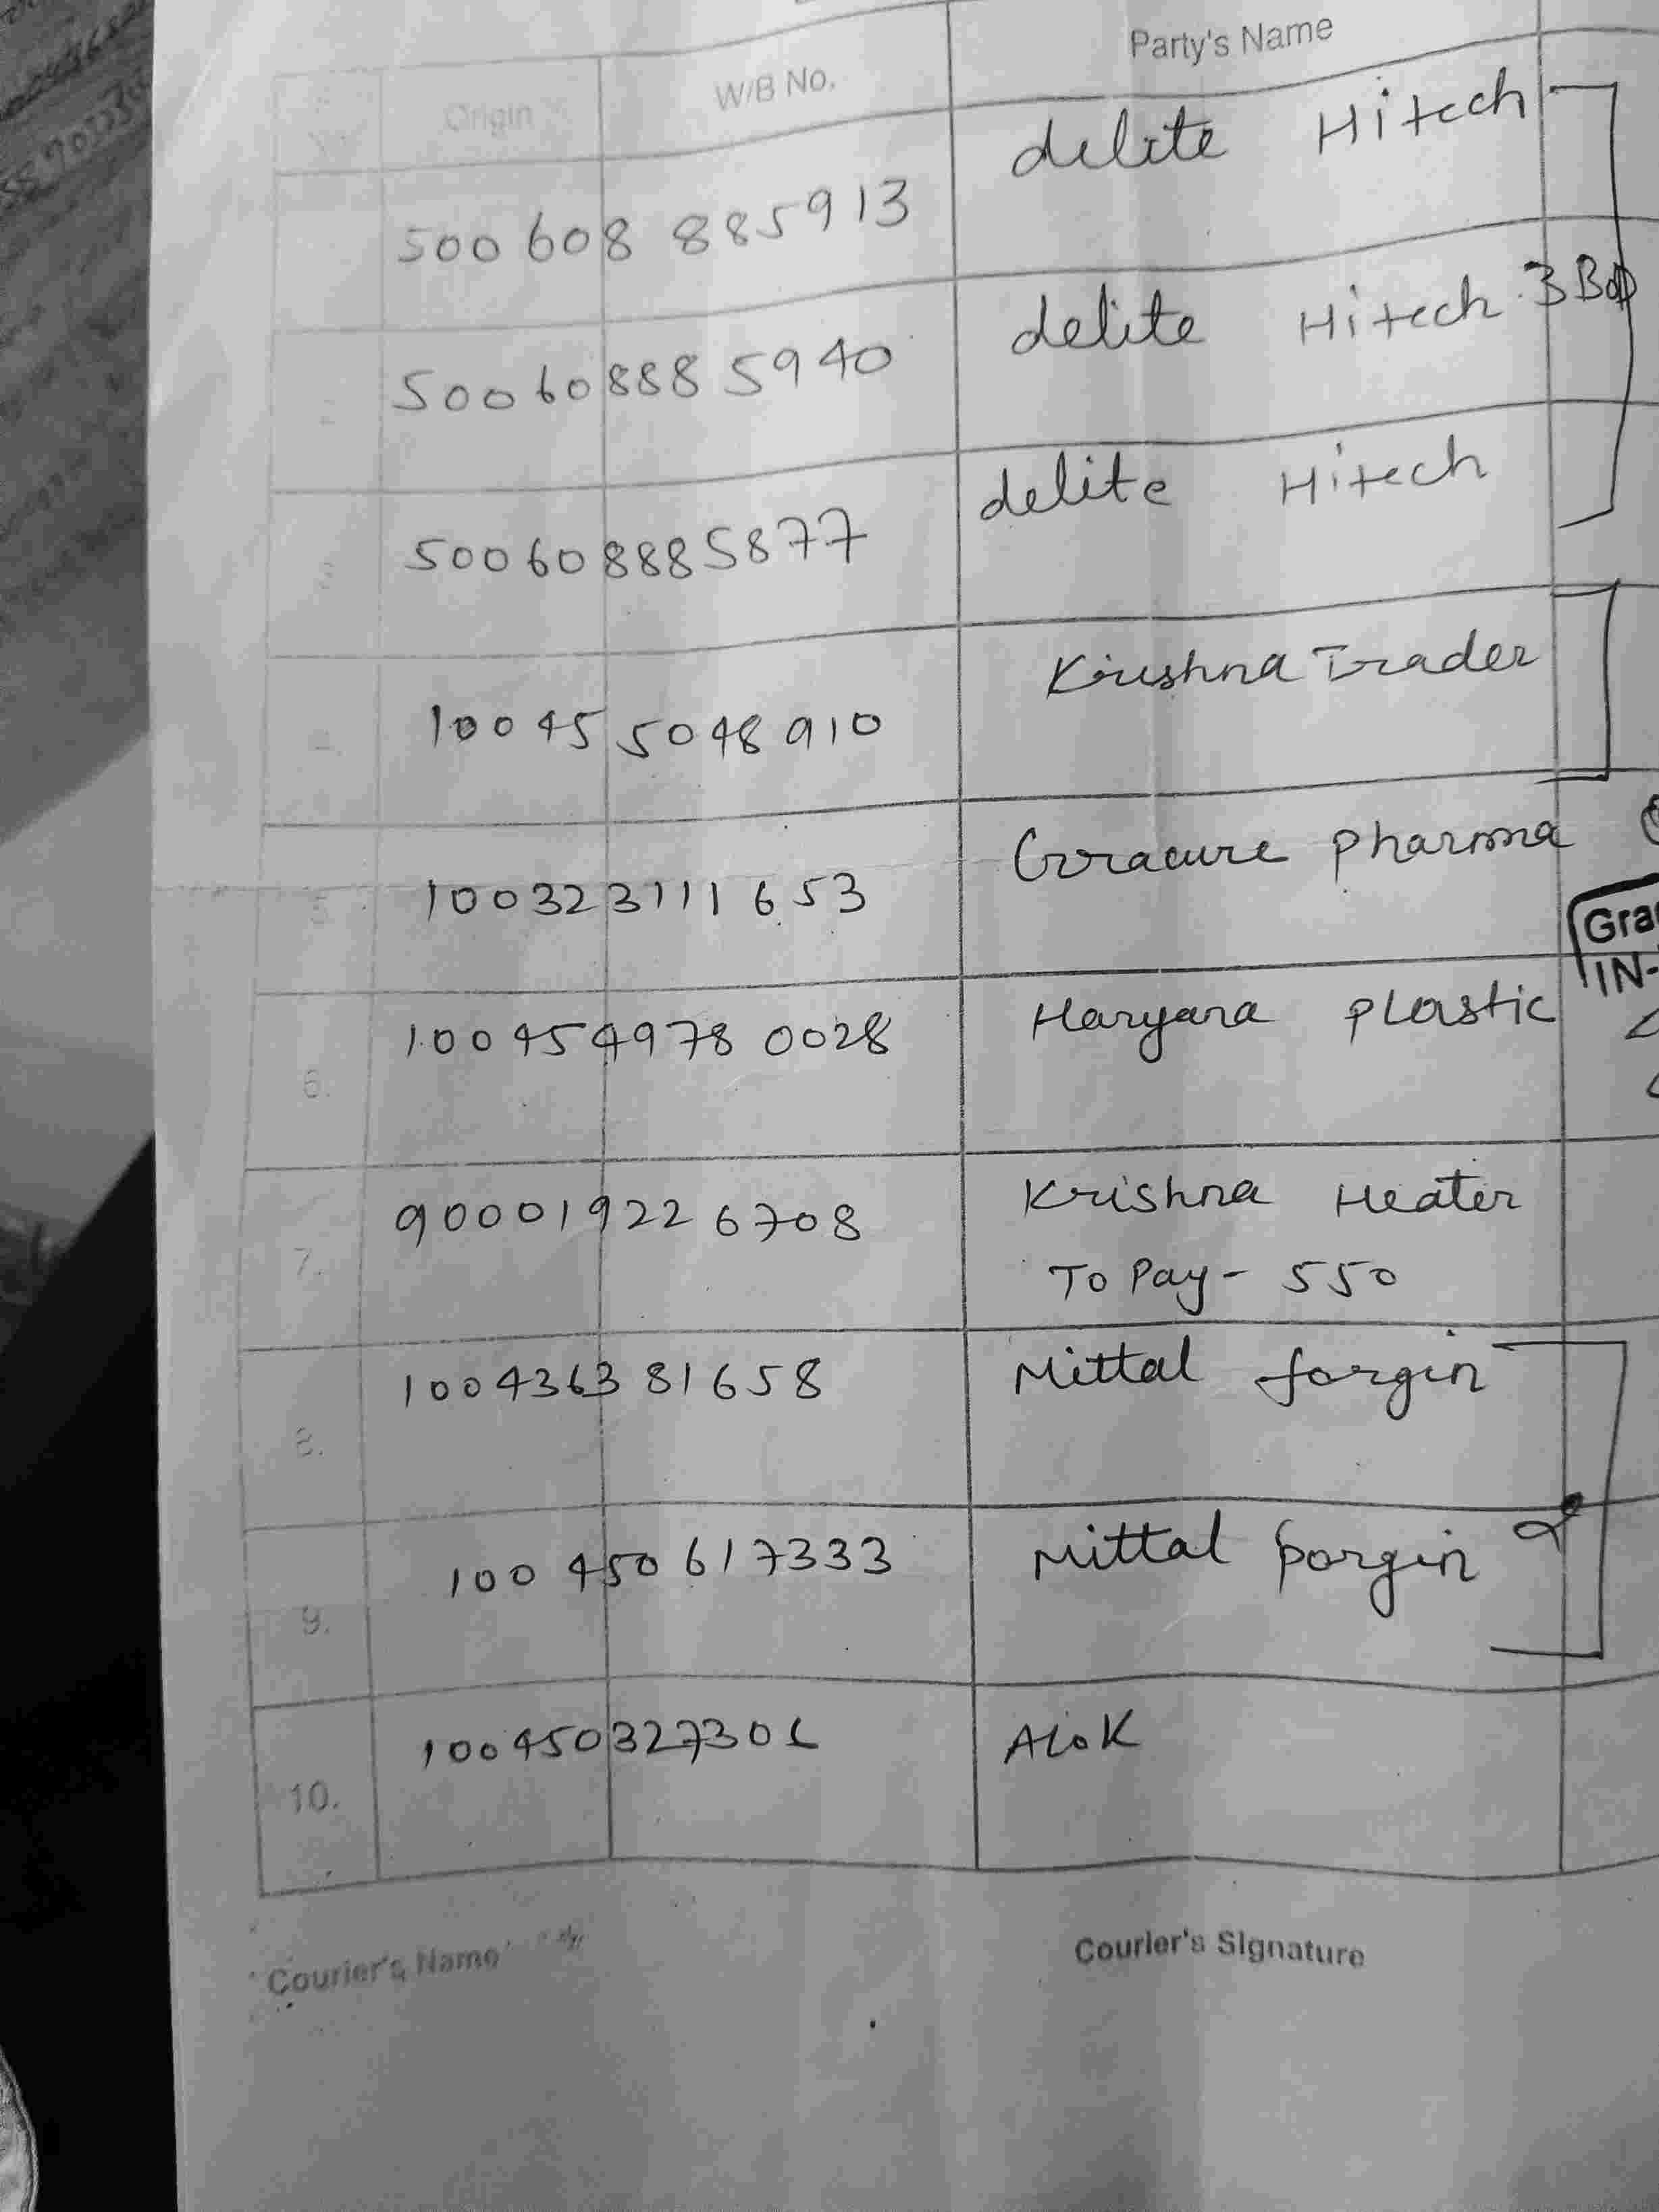 Origin W/B No. Party's Name
500608885913 delite Hitech
2 500608885940 delite Hitech 3 Box
3 500608885877 delite Hitech
100455048910 Krishna Trader
5 100323111653 Gracure pharma
Gra
IN-
6. 1004549780028 Haryana plastic
7. 900019226708 Krishna Heater
To Pay - 550
8. 100436381658 Mittal forgin
9. 100450617333 Mittal forgin 2
10. 100450327306 Alok
Courier's Name Courier's Signature